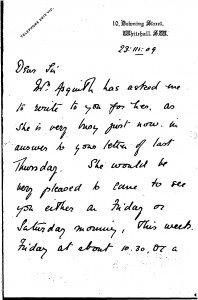 10, Downing Street,
Whitehall. S.W.
23·III·09
Dear Sir
Mrs Asquith has asked me
to write to you for her, as
she is very busy just now. in
answer to your letter of last
Thursday. She would be
very pleased to come to see
you either on Friday or
Saturday morning, this week.
Friday at about 10.30, or a